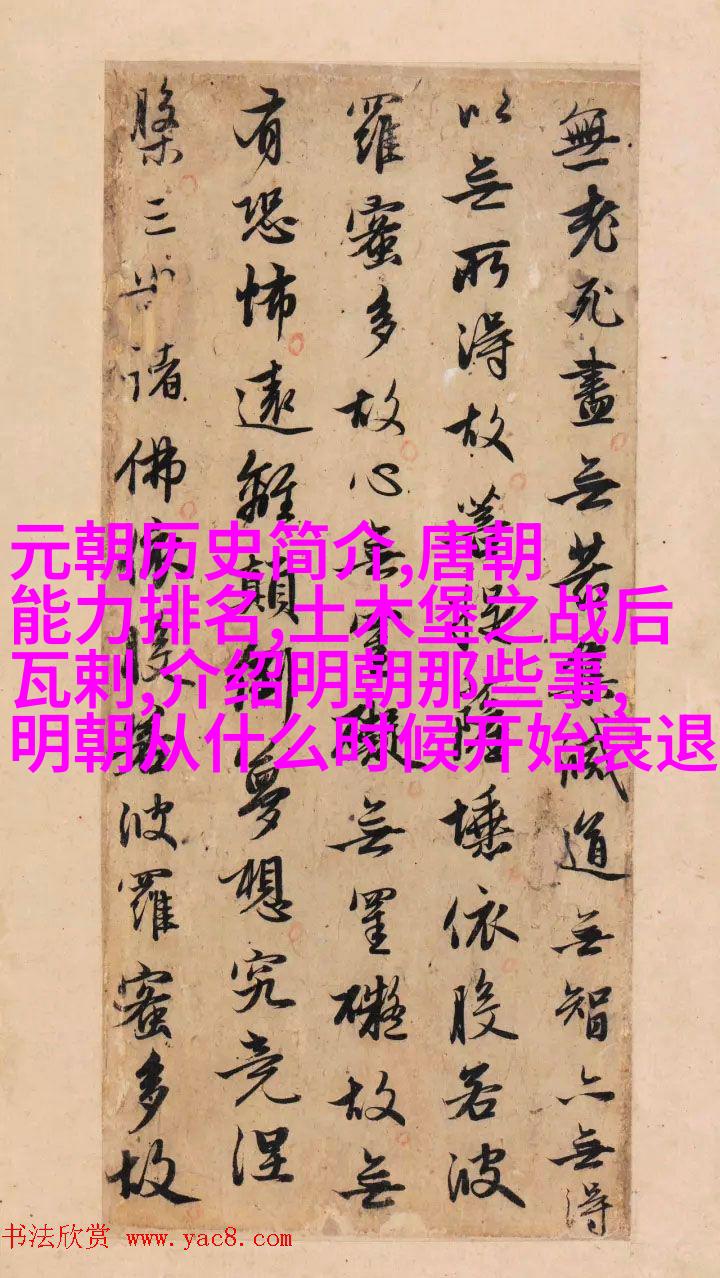 無老死盡無苦集滅道無智亦無得
以無所得故菩提薩埵依般若波
羅蜜多故心無罣礙無罣礙故無
有恐怖遠離顛倒夢想究竟涅
槃三世諸佛依般若波羅蜜多故
元朝历史简介,唐朝
能力排名,土木堡之战后
瓦剌,介绍明朝那些事,
明朝从什么时候开始衰退
书法欣赏 www.yac8.com